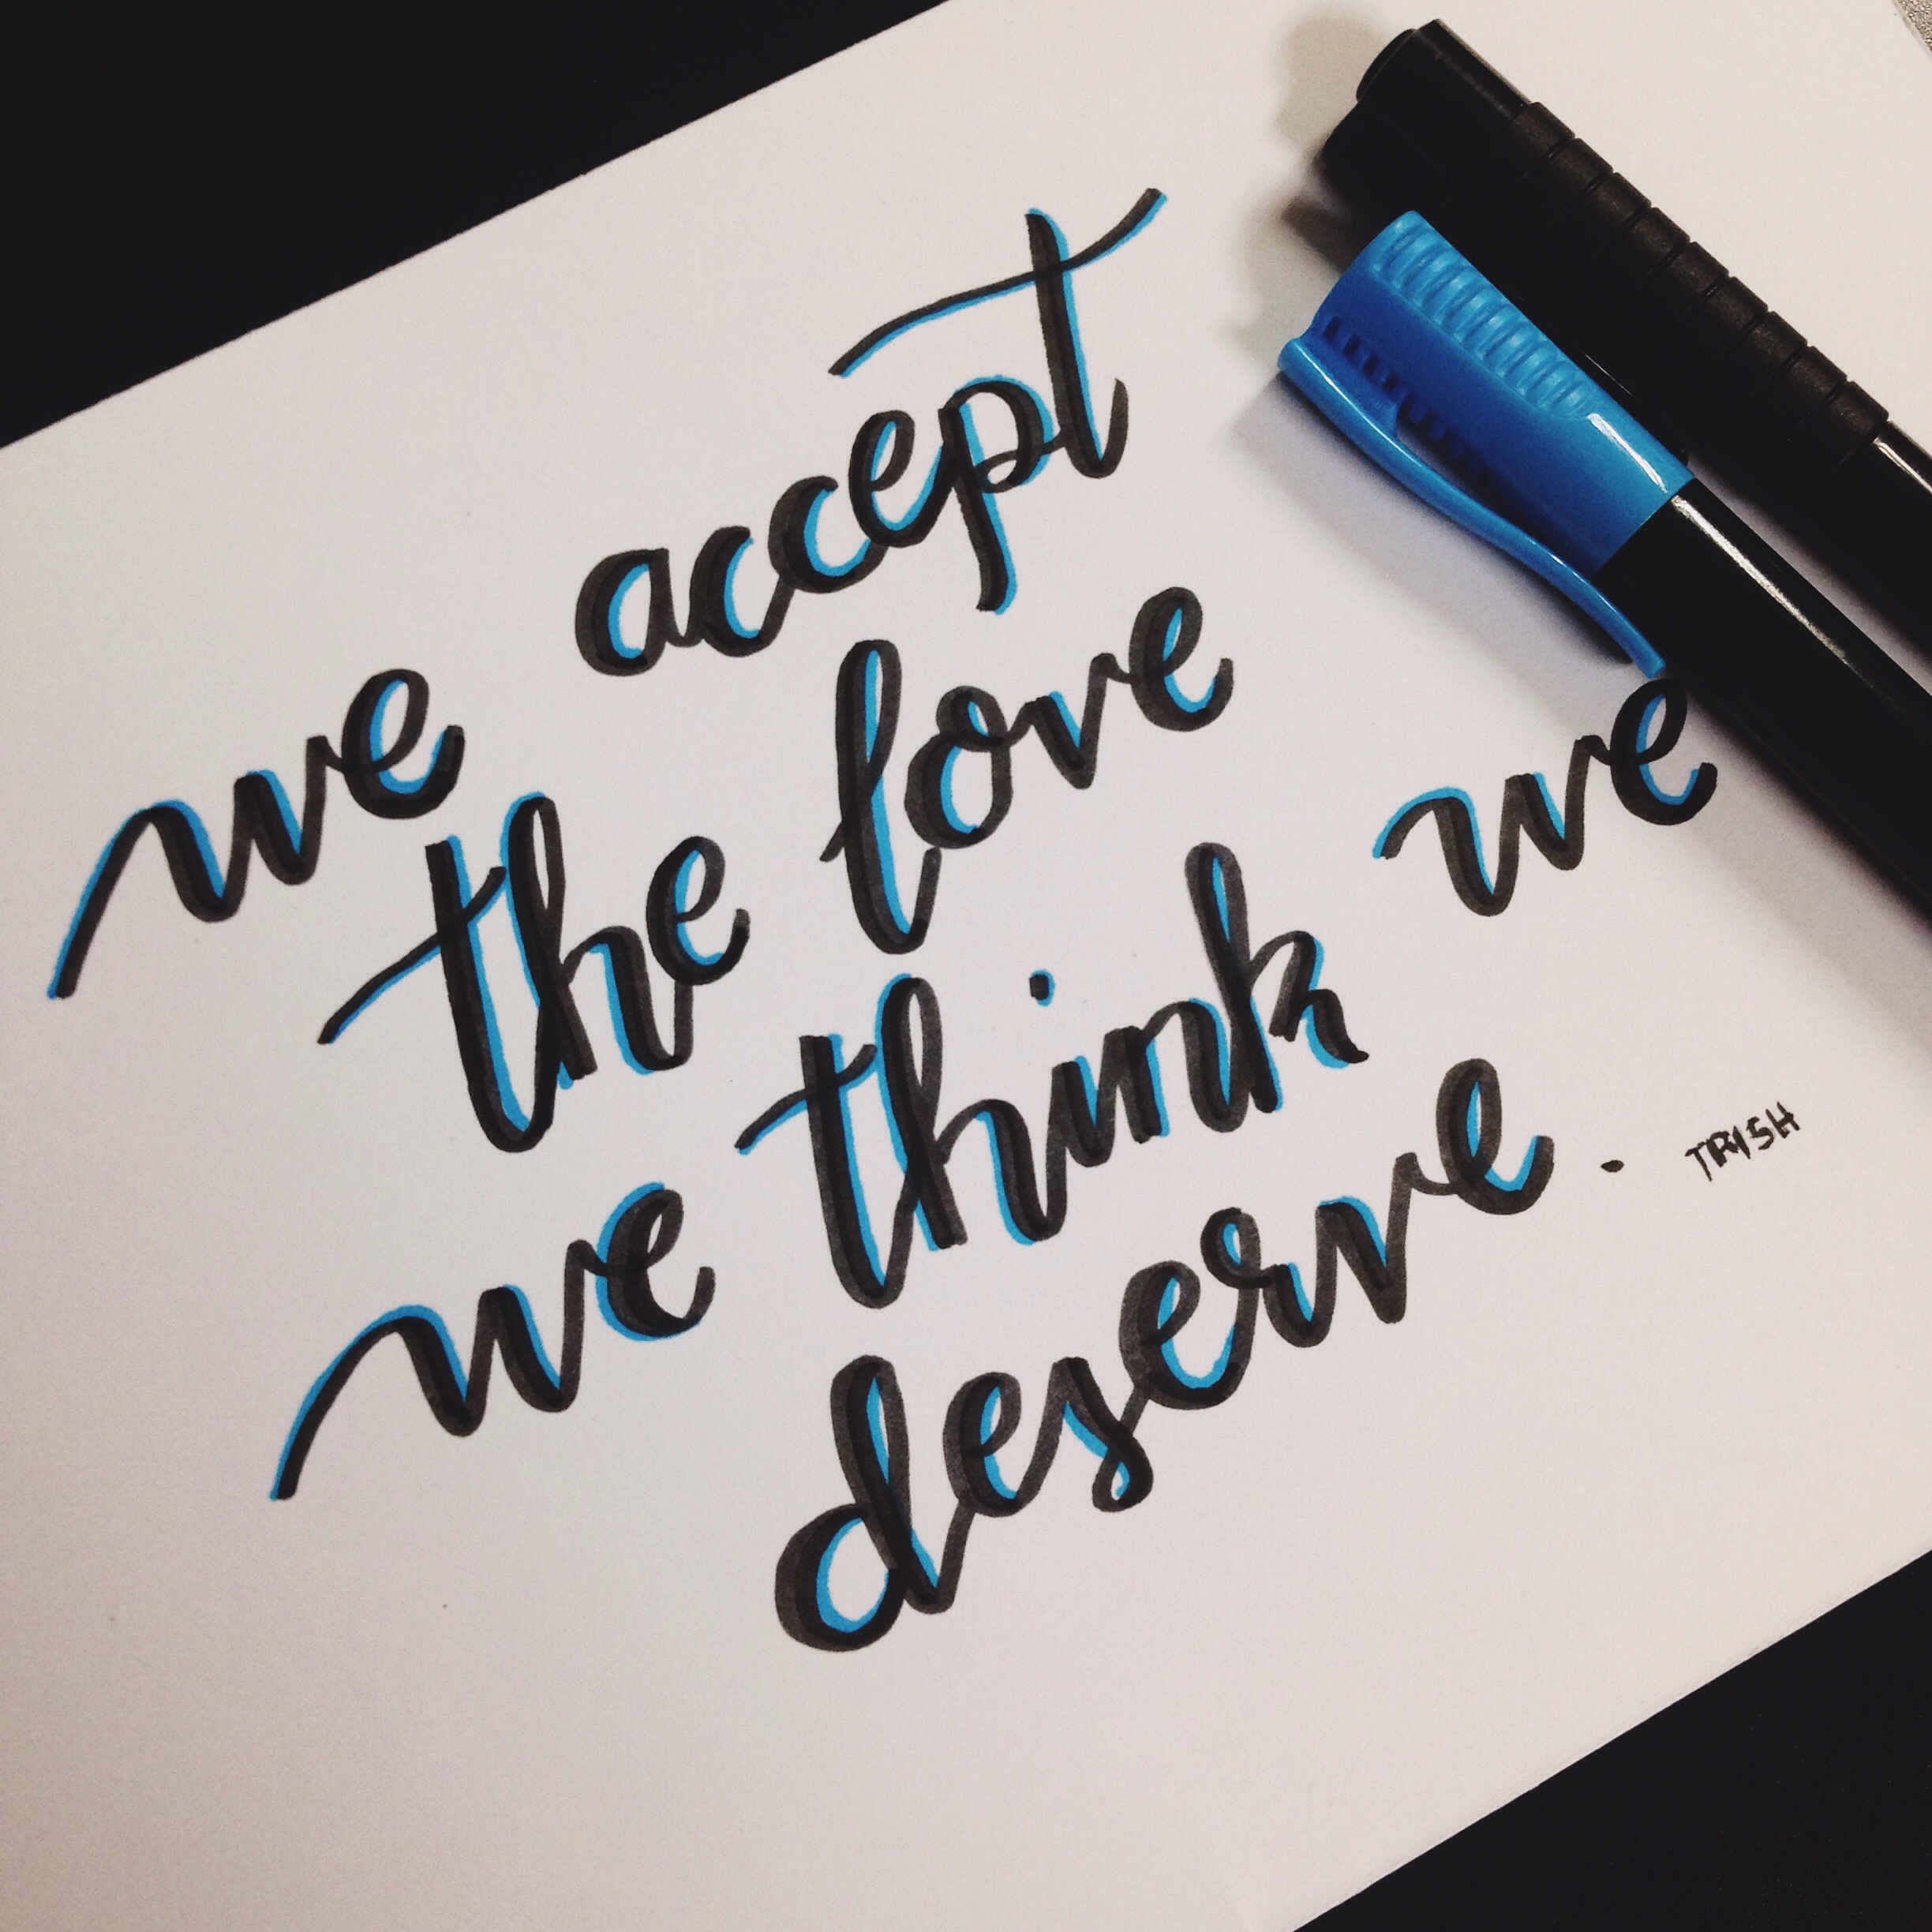 we accept
the love
we think we
deserve.
TRISH